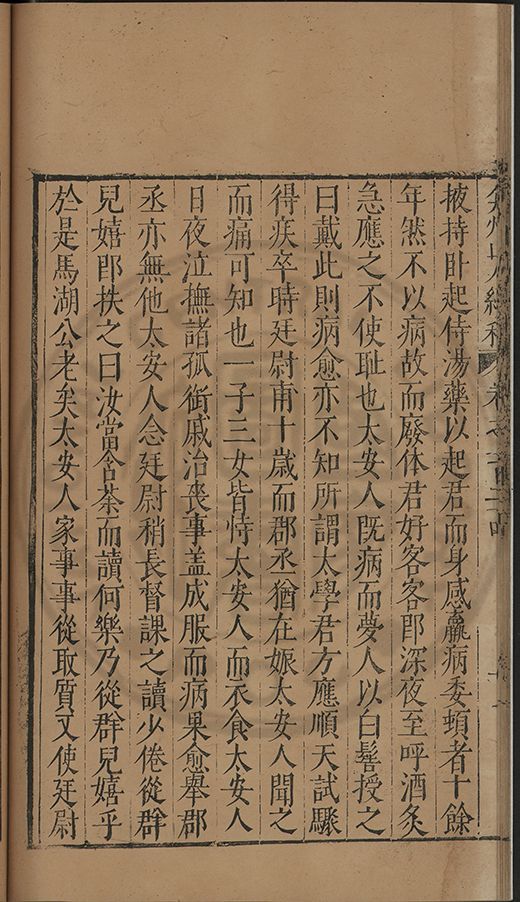 掖持卧起侍湯藥以起君而身感羸病委頓者十餘
年然不以病故而廢体君好客客郎深夜至呼酒炙
急應之不使耻也太安人既病而夢人以白髻授之
曰戴此則病愈亦不知所謂太學君方應順天試驟
得疾卒時廷尉甫十歳而郡丞猶在娠太安人聞之
而痛可知也一子三女皆恃太安人而衣食太安人
日夜泣撫諸孤銜戚治喪事盖成服而病果愈舉郡
丞亦無他太安人念廷尉稍長督課之讀少倦從群
兒嬉郎抶之曰汝當含荼而讀何樂乃從群兒嬉乎
於是馬湖公老矣太安人家事事從取質又使廷尉